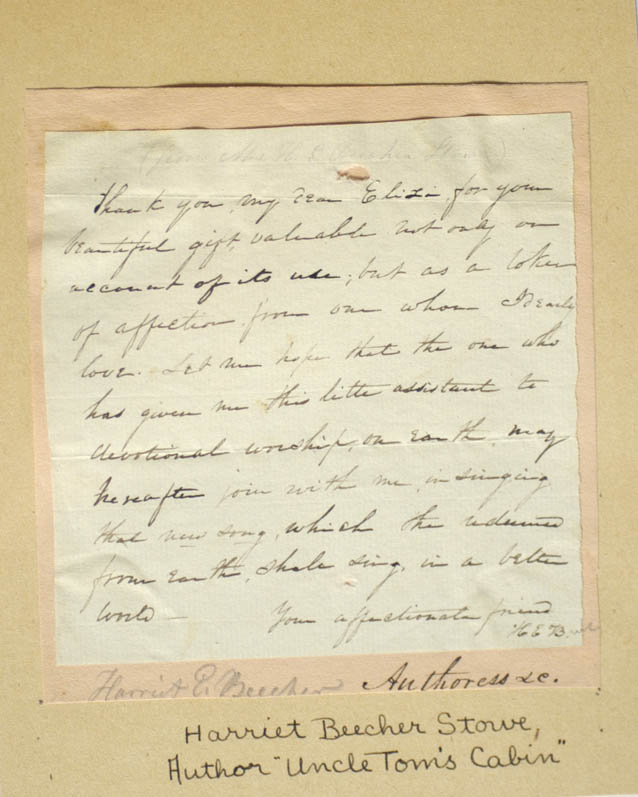 (from Mrs H. E. Beecher Stowe)
Thank you, my dear Eliza, for your
beautiful gift, valuable not only on
account of its use; but as a token
of affection from one whom I dearly
love. Let me hope that the one who
has given me this little assistant to
devotional worship, on Earth, may
hereafter join with me, in singing
that new song, which the redeemed
from Earth, shall sing, in a better
world —  Your affectionate friend
H E B
Harriet E. Beecher Authoress &c.
Harriet Beecher Stowe,
Author "Uncle Tom's Cabin"